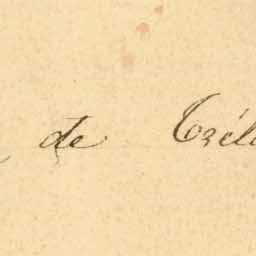 de Crél